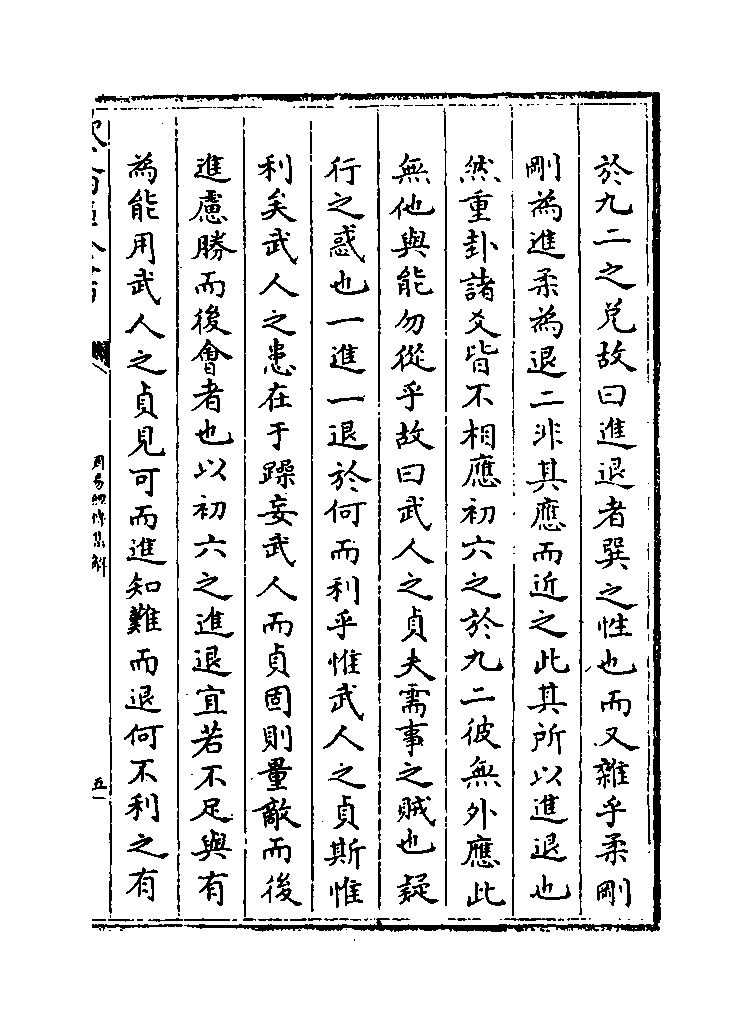 於九二之兊故曰進退者巽之性也而又雜乎柔剛
剛為進柔為退二非其應而近之此其所以進退也
然重卦諸爻皆不相應初六之於九二彼無外應此
無他與能勿從乎故曰武人之貞夫需事之賊也疑
行之惑也一進一退於何而利乎惟武人之貞斯惟
利矣武人之患在于躁妄武人而貞固則量敵而後
進慮勝而後會者也以初六之進退宜若不足與有
為能用武人之貞見可而進知難而退何不利之有
周易經傳集解
五